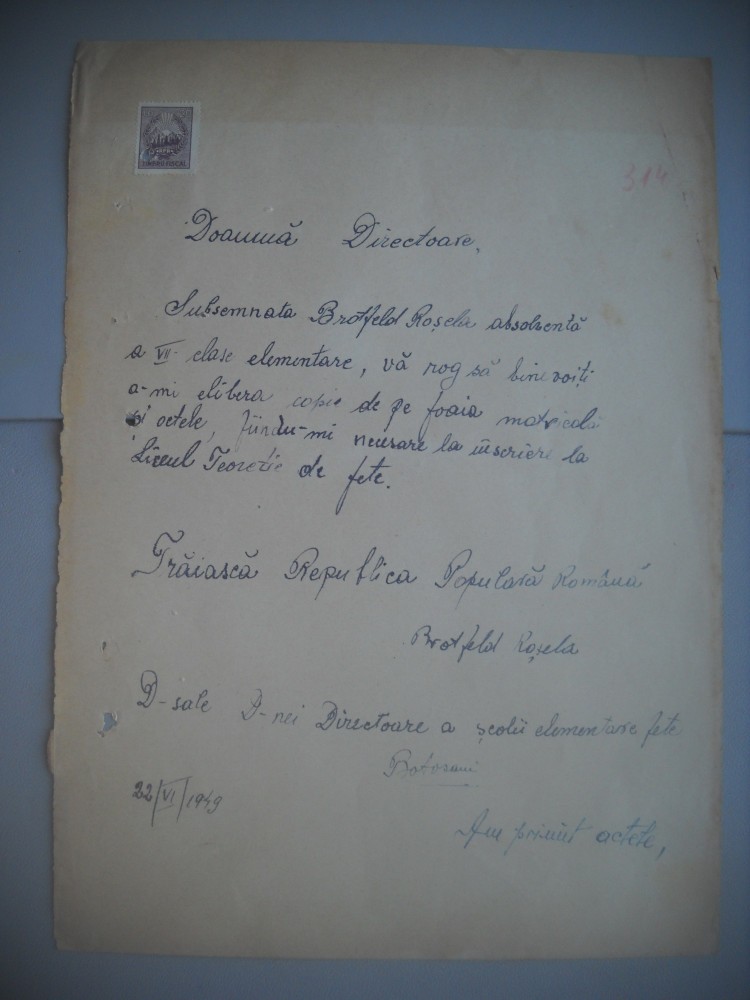 TIMBRU FISCAL
314
Doamnă Directoare,
Subsemnata Brotfeld Roșela absolventă
a VII- clase elementare, vă rog să bine voiți
a-mi elibera copie de pe foaia matricolă
și actele, fiindu-mi necesare la înscriere la
Liceul Teoretic de fete.
Trăiască Republica Populară Română
Brotfeld Roșela
D-sale D-nei Directoare a școlii elementare fete
Botoșani
22/VI/1949
Am primit actele,